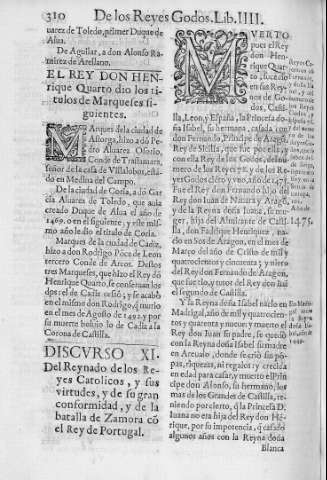 310 De los Reyes Godos. Lib. IIII.
uarez de Toledo, primer Duque de
Alua.
De Aguilar, a don Alonso Ra-
mirez de Arellano.
EL REY DON HEN-
rique Quarto dio los ti-
tulos de Marqueses si-
guientes.
MArques de la ciudad de
Astorga, hizo a dō Pe-
dro Aluarez Osorio,
Conde de Trastamara,
señor de la casa de Villalobos, està
do en Medina del Campo.
De la ciudad de Coria, a dō Gar-
cia Aluarez de Toledo, que auia
creado Duque de Alua el año de
1469. o en el siguiente, y este mis-
mo año le dio el titulo de Coria.
Marques de la ciudad de Cadiz,
hizo a don Rodrigo Pōce de Leon
tercero Conde de Arcos. Destos
tres Marqueses, que hizo el Rey dō
Henrique Quarto, se conseruan los
dos
el mismo don Rodrigo, q murio
en el mes de Agosto de 1492. y por
su muerte boluio lo de Cadiz a la
Corona de Castilla.
DISCVRSO XI.
Del Reynado de los Re-
yes Catolicos, y sus
virtudes, y de su gran
conformidad, y de la
batalla de Zamora cō
el Rey de Portugal.
MVERTO
pues el Rey
don Hen-
rique Quar-
to, sucedio
en sus Rey-
nos de Go-
dos, Casti-
lla, Leon, y España, la Princesa do-
ña Isabel, su hermana, casada con
don Fernando, Principe de Aragō,
Rey de Sicilia, que fue por ella, y
con ella Rey de los Godos, del nu-
mero de los Reyes
Godos ciēto y vno, año de 1475.
Fue el Rey don Fernando hijo del
Rey don Iuan de Nauarra y Aragō,
y de la Reyna doña Iuana, su mu-
ger, hija del Almirante de Casti-
lla, don Fadrique Henriquez, na-
cio en Sos de Aragon, en el mes de
Março del año de Cristo de mil y
quatrocientos y cincuenta
del Rey don Fernando de Aragon,
que fue
el segundo de Castilla.
Y la Reyna doña Isabel nacio en
Madrigal, año de mil y quatrocien-
tos y quarenta y nueue: y muerto el
Rey don Iuan su padre, se quedò
con la Reyna doña Isabel su madre
en Areualo, donde se criò sin põpas,
riquezas, ni regalos: y crecida
en edad para casar, y muerto el Prin-
cipe don Alonso, su hermano, los
mas de los Grandes de Castilla, te-
niendo por cierto, q la Princesa D.
Iuana no era hija del Rey don Hen-
rique, por su impotencia, q casado
algunos años con la Reyna doña
Blanca
1475.